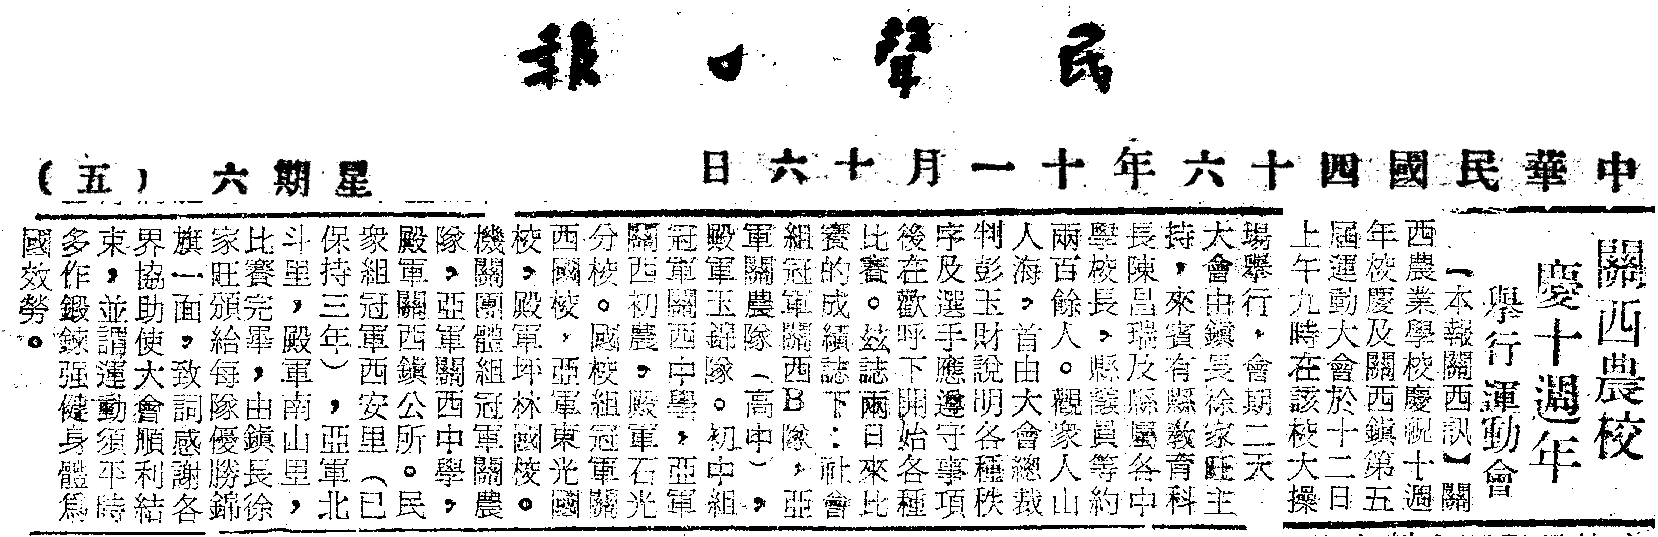 民聲日報
中華民國四十六年十一月十六日
星期六
(五)
關西農校
慶十週年
舉行運動會
【本報關西訊】關
西農業學校慶祝十週
年校慶及關西鎮第五
屆運動大會於十二日
上午九時在該校大操
場舉行,會期二天
大會由鎮長徐家旺主
持,來賓有縣敎育科
長陳昌瑞及縣屬各中
學校長,縣議員等約
兩百餘人。觀衆人山
人海,首由大會總裁
判彭玉財說明各種秩
序及選手應遵守事項
後在歡呼下開始各種
比賽。茲誌兩日來比
賽的成績誌下:社會
組冠軍關西B隊,亞
軍關農隊(高中),
殿軍玉錦隊。初中組
冠軍關西中學,亞軍
關西初農,殿軍石光
分校。國校組冠軍關
西國校,亞軍東光國
校,殿軍坪林國校。
機關團體組冠軍關農
隊,亞軍關西中學,
殿軍關西鎮公所。民
衆組冠軍西安里(已
保持三年),亞軍北
斗里,殿軍南山里,
比賽完畢,由鎮長徐
家旺頒給每隊優勝錦
旗一面,致詞感謝各
界協助使大會順利結
束,並謂運動須平時
多作鍛鍊强健身體爲
國效勞。